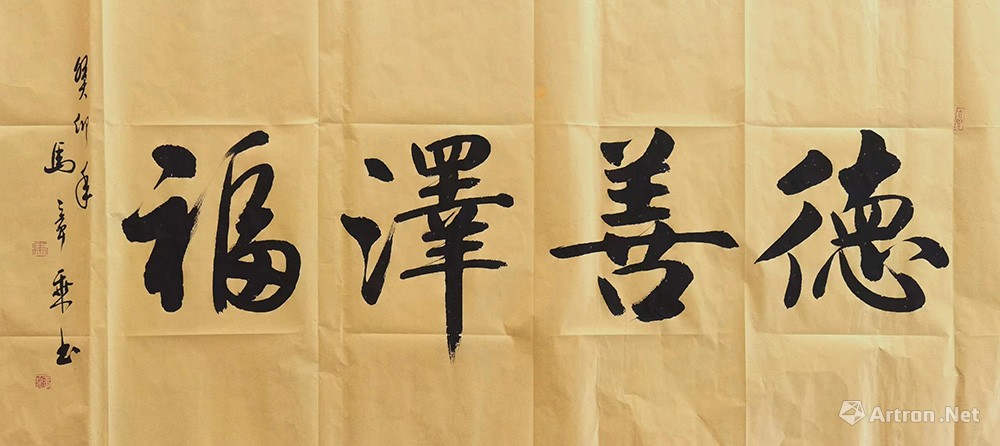 德善澤福
癸卯年
馬章乘书
Artron.Net